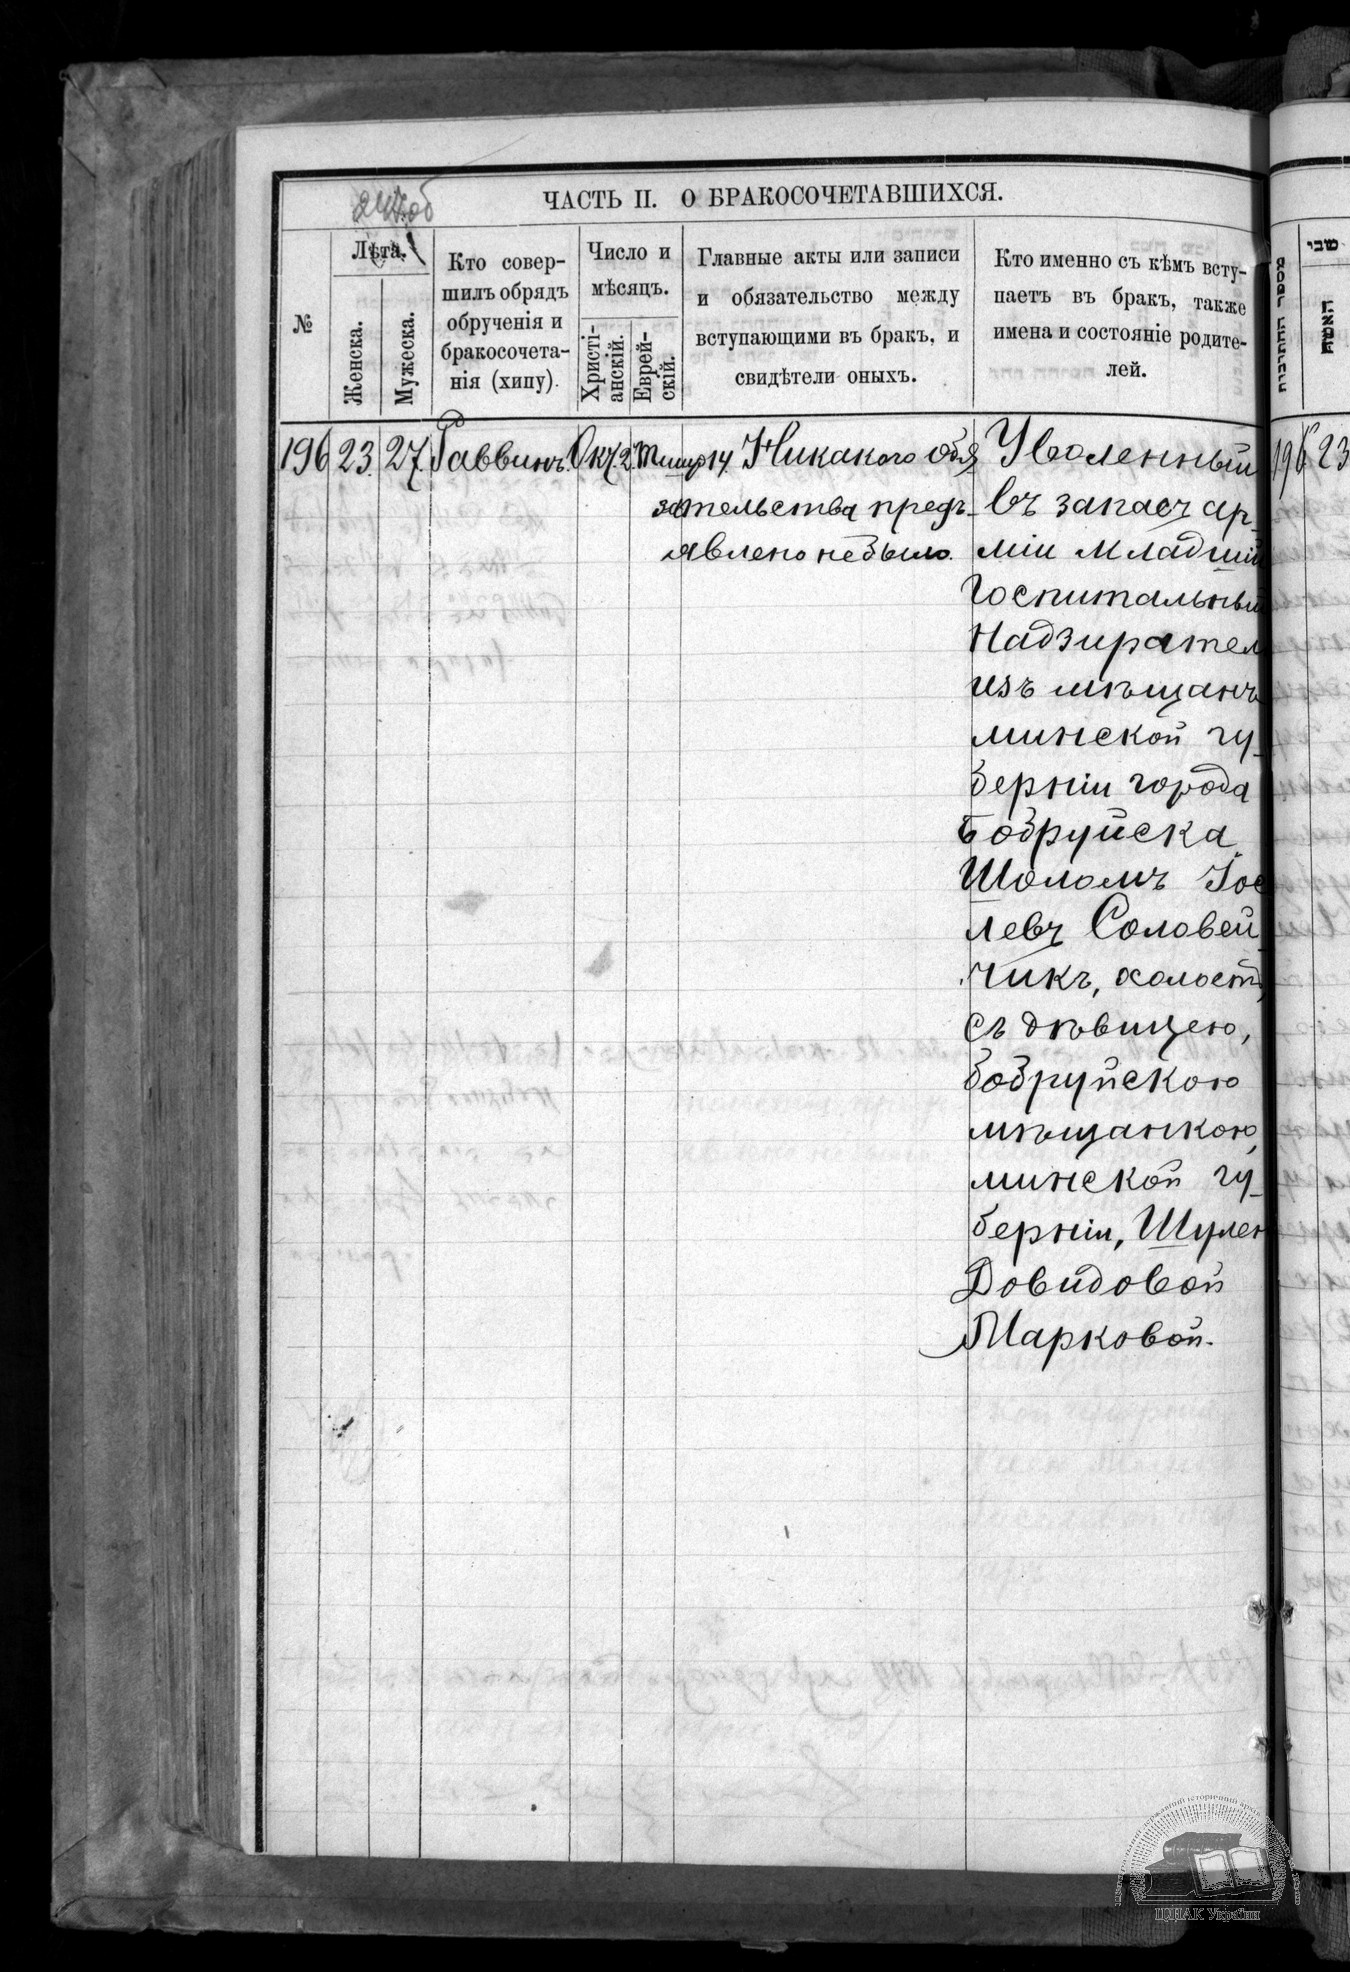 ЧАСТЬ II. О БРАКОСОЧЕТАВШИХСЯ.
№
Лѣта.
Женска.
Мужеска.
Кто совер-
шилъ обрядъ
обрученія и
бракосочета-
нія (хипу).
Число и
мѣсяцъ.
Христі-
анскій.
Еврей-
скій.
Главные акты или записи
и обязательство между
вступающими въ бракъ, и
свидѣтели оныхъ.
Кто именно съ кѣмъ всту-
паетъ въ бракъ, также
имена и состояніе родите-
лей.
196 23 27 Раввинъ. Окт. 2. Тишр. 14. Никакого обя
зательства предъ-
явлено небыло.
Уволенный
въ запасъ ар-
міи младшій
Госпитальный
Надзирател
изъ мѣщанъ
минской гу-
берніи города
Бобруйска
Шоломъ Іос
левъ Соловей-
чикъ, холост,
съ дѣвицею,
бобруйскою
мѣщанкою,
минской гу-
берніи, Шулен
Довидовой
Марковой.
מספר החתונות
שני
האשה
196 23
ЦДІАК України